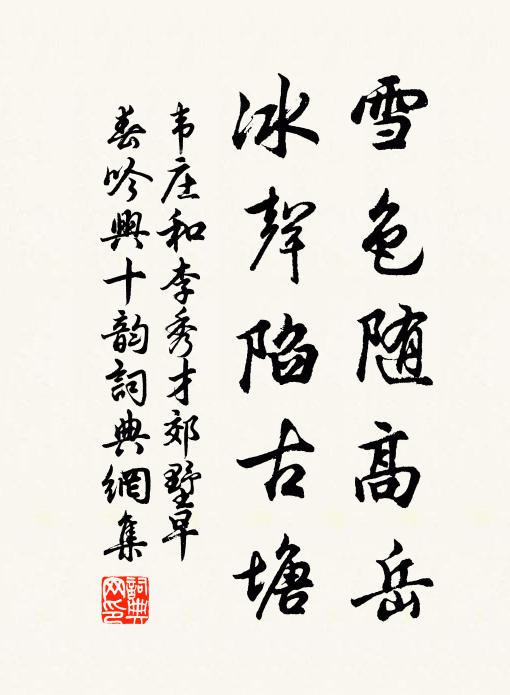 雪色随高岳
冰聲陷古塘
韦庄和李秀才郊墅早
春吟興十韵詞典網集
詞典網印